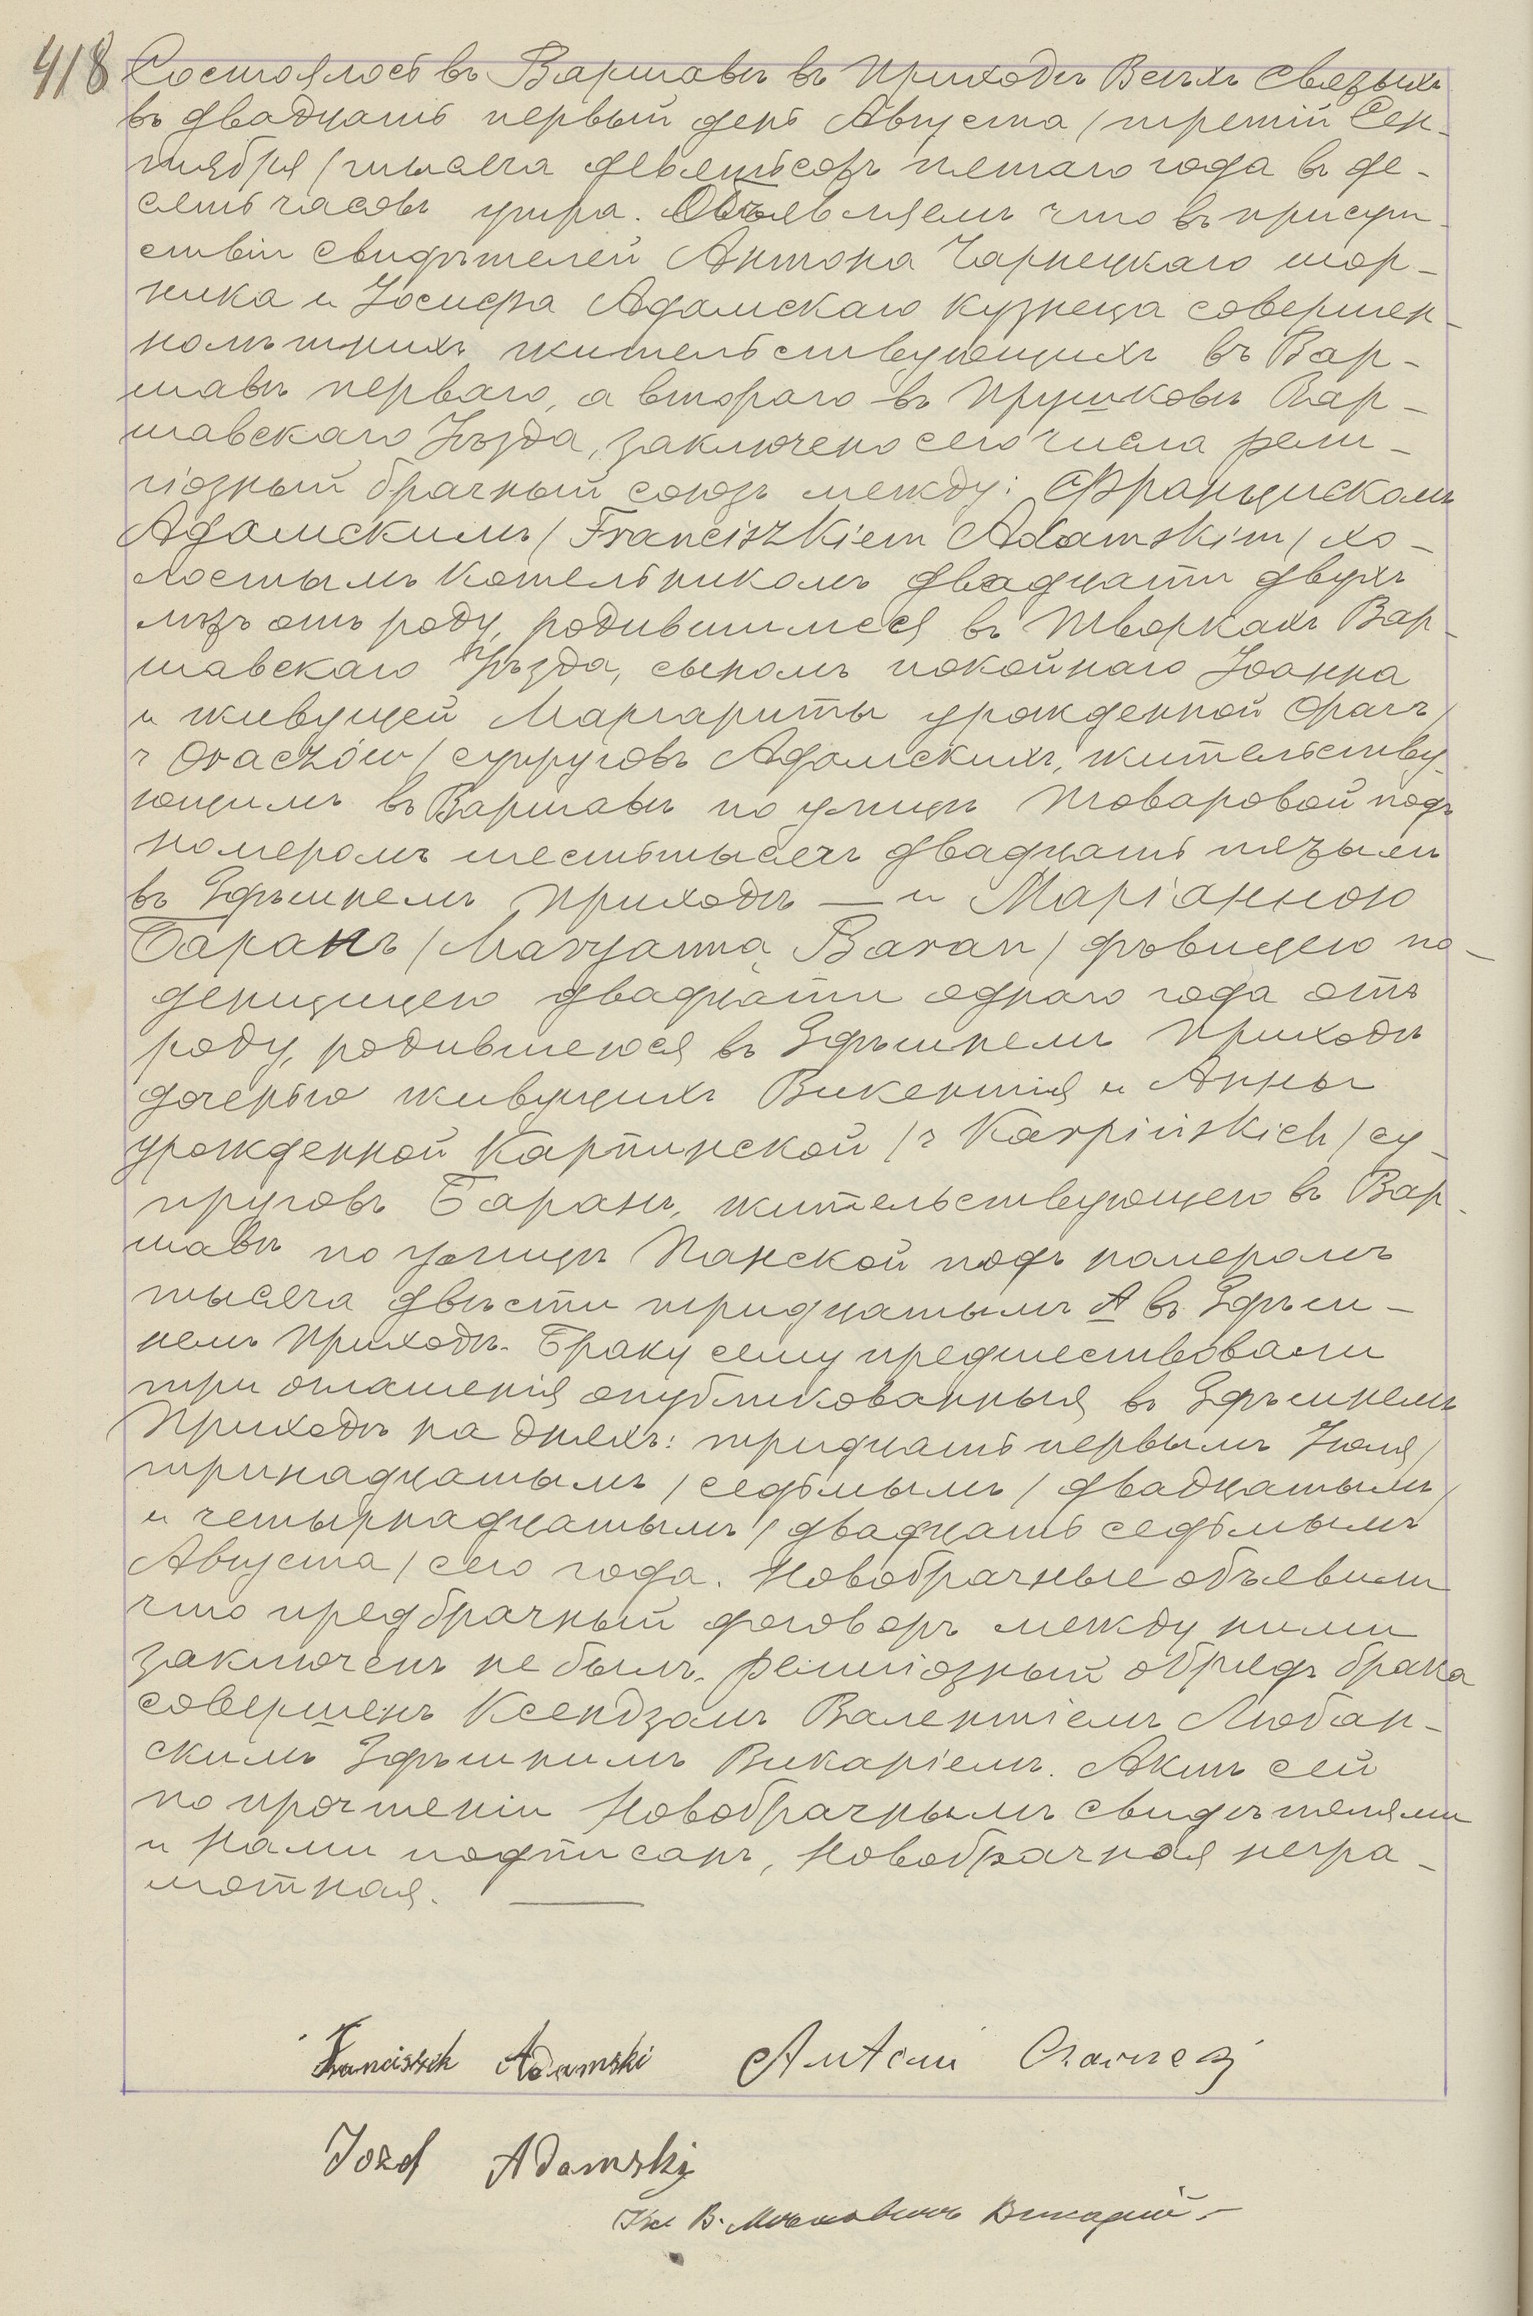 418
Состоялось въ Варшавѣ въ приходѣ Всѣхъ Святыхъ
въ двадцать первый день Августа / третій Сен-
тября / тысяча девятьсотъ пятаго года въ де-
сять часовъ утра. Объявляемъ что въ присут-
ствіи свидѣтелей Антона Чарнецкаго шор-
ника и Іосифа Адамскаго кузнеца совершен-
нолѣтнихъ жительствующихъ въ Вар-
шавѣ перваго, а втораго въ Прушковѣ Вар-
шавскаго Уѣзда, заключено сего числа рели-
гіозный брачный союзъ между: Францискомъ
Адамскимъ / Franciszkiem Adamskim / хо-
лостымъ котельникомъ двадцати двухъ
лѣтъ отъ роду, родившимся въ Творкахъ Вар-
шавскаго Уѣзда, сыномъ покойнаго Іоанна
и живущей Маргариты урожденной Орачъ /
z Oraczów / супруговъ Адамскихъ, жительству-
ющимъ въ Варшавѣ по улицѣ Товаровой подъ
номеромъ шестьтысячъ двадцать пятымъ
въ Здѣшнемъ приходѣ — и Маріанною
Баранъ / Maryanną Baran / дѣвицею по-
денщицею двадцати одного года отъ
роду, родившеюся въ Здѣшнемъ приходѣ
дочерью живущихъ Викентія и Анны
урожденной Карпинской / z Karpińskich / су-
пруговъ Баранъ, жительствующею въ Вар-
шавѣ по улицѣ Панской подъ номеромъ
тысяча двѣсти тридцатымъ А въ Здѣш-
немъ приходѣ. Браку сему предшествовали
три оглашенія опубликованныя въ Здѣшнемъ
приходѣ на дняхъ: тридцать первымъ Іюля /
тринадцатымъ / седьмымъ / двадцатымъ /
и четырнадцатымъ / двадцать седьмымъ
Августа / сего года. Новобрачные объявили
что предбрачный договоръ между ними
заключенъ не былъ. Религіозный обрядъ брака
совершенъ Ксендзомъ Валентіемъ Любан-
скимъ Здѣшнимъ Викаріемъ. Актъ сей
по прочтеніи Новобрачнымъ свидѣтелями
и Нами подписанъ, Новобрачная негра-
мотная.
Franciszek Adamski Antoni
Jozef Adamski
Кс В. Викарій